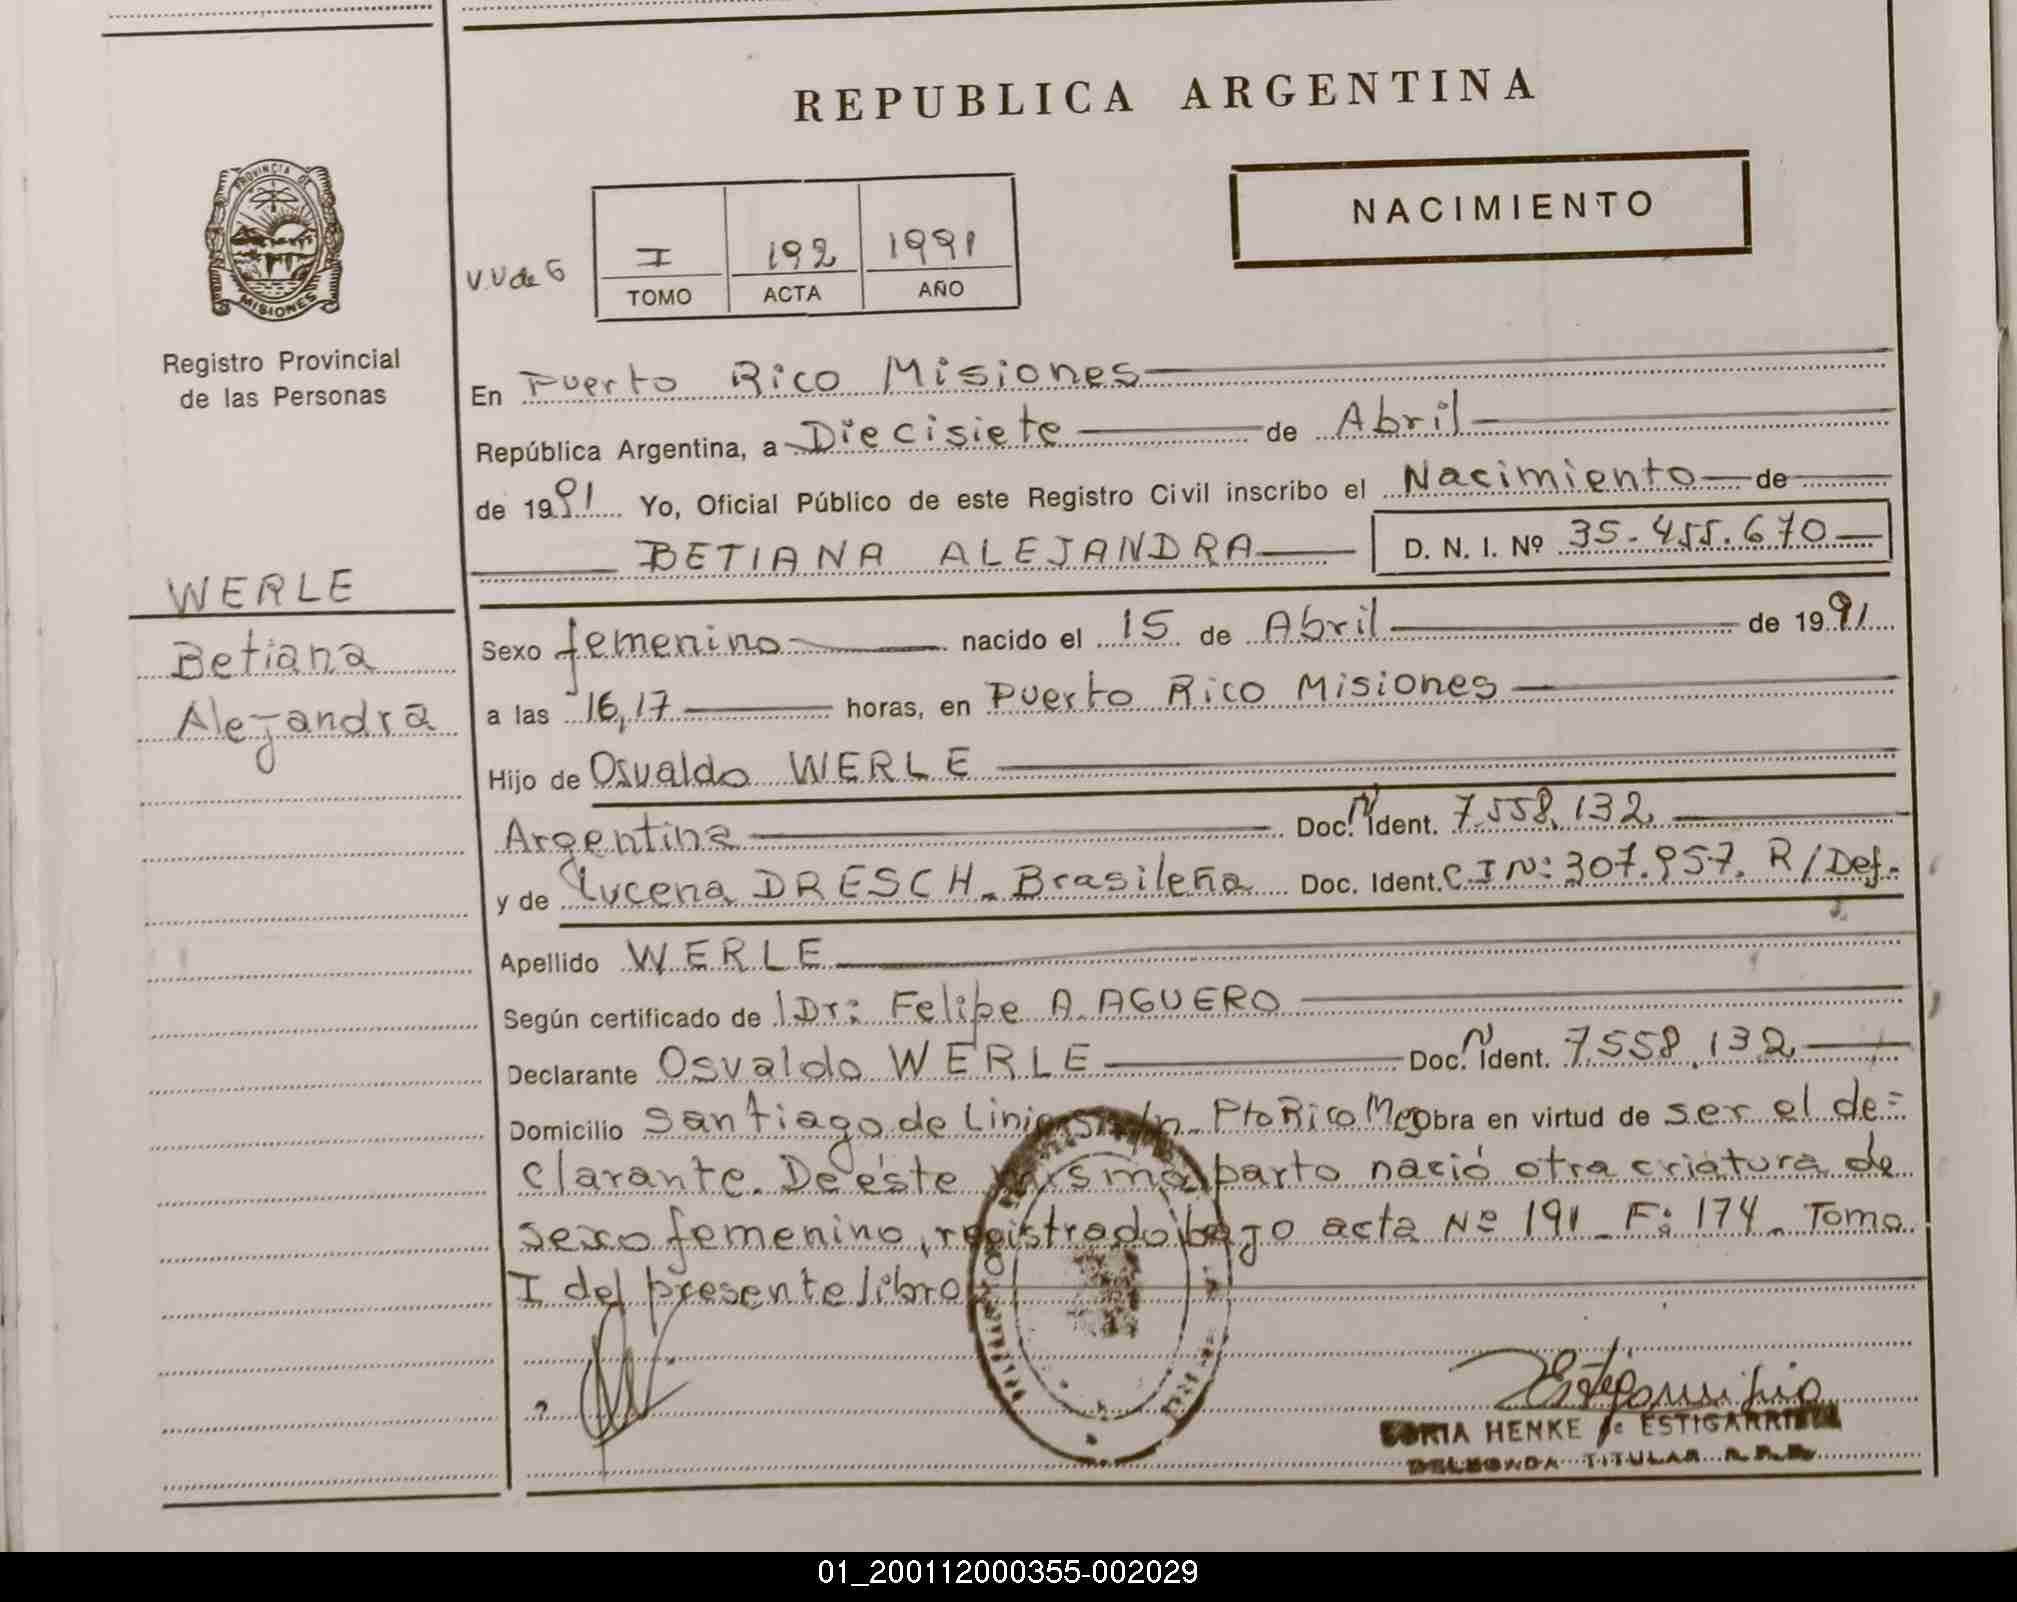 REPUBLICA ARGENTINA
NACIMIENTO
PROVINCIA DE
MISIONES
Registro Provincial
de las Personas
V.V de G
I 192 1991
TOMO ACTA AÑO
En Puerto Rico Misiones
República Argentina, a Diecisiete de Abril
de 1991 Yo, Oficial Público de este Registro Civil inscribo el Nacimiento de
BETIANA ALEJANDRA D. N. I. Nº 35.455.670
WERLE
Betiana
Alejandra
Sexo femenino nacido el 15 de Abril de 1991
a las 16,17 horas, en Puerto Rico Misiones
Hijo de Osvaldo WERLE
Argentina Doc. Ident. 7.558.132
y de Lucena DRESCH. Brasileña Doc. Ident. C I N: 307.957. R/Def.
Apellido WERLE
Según certificado de Dr: Felipe A. AGUERO
Declarante Osvaldo WERLE Doc. Ident. 7.558.132
Domicilio Santiago de Liniers Pto Rico obra en virtud de ser el de=
clarante. De éste mismo parto nació otra criatura de
sexo femenino, registrado bajo acta Nº 191 F: 174. Tomo
I del presente libro
HENKE de ESTIGARRIBIA
DELEGADA TITULAR R.P.P.
01_200112000355-002029